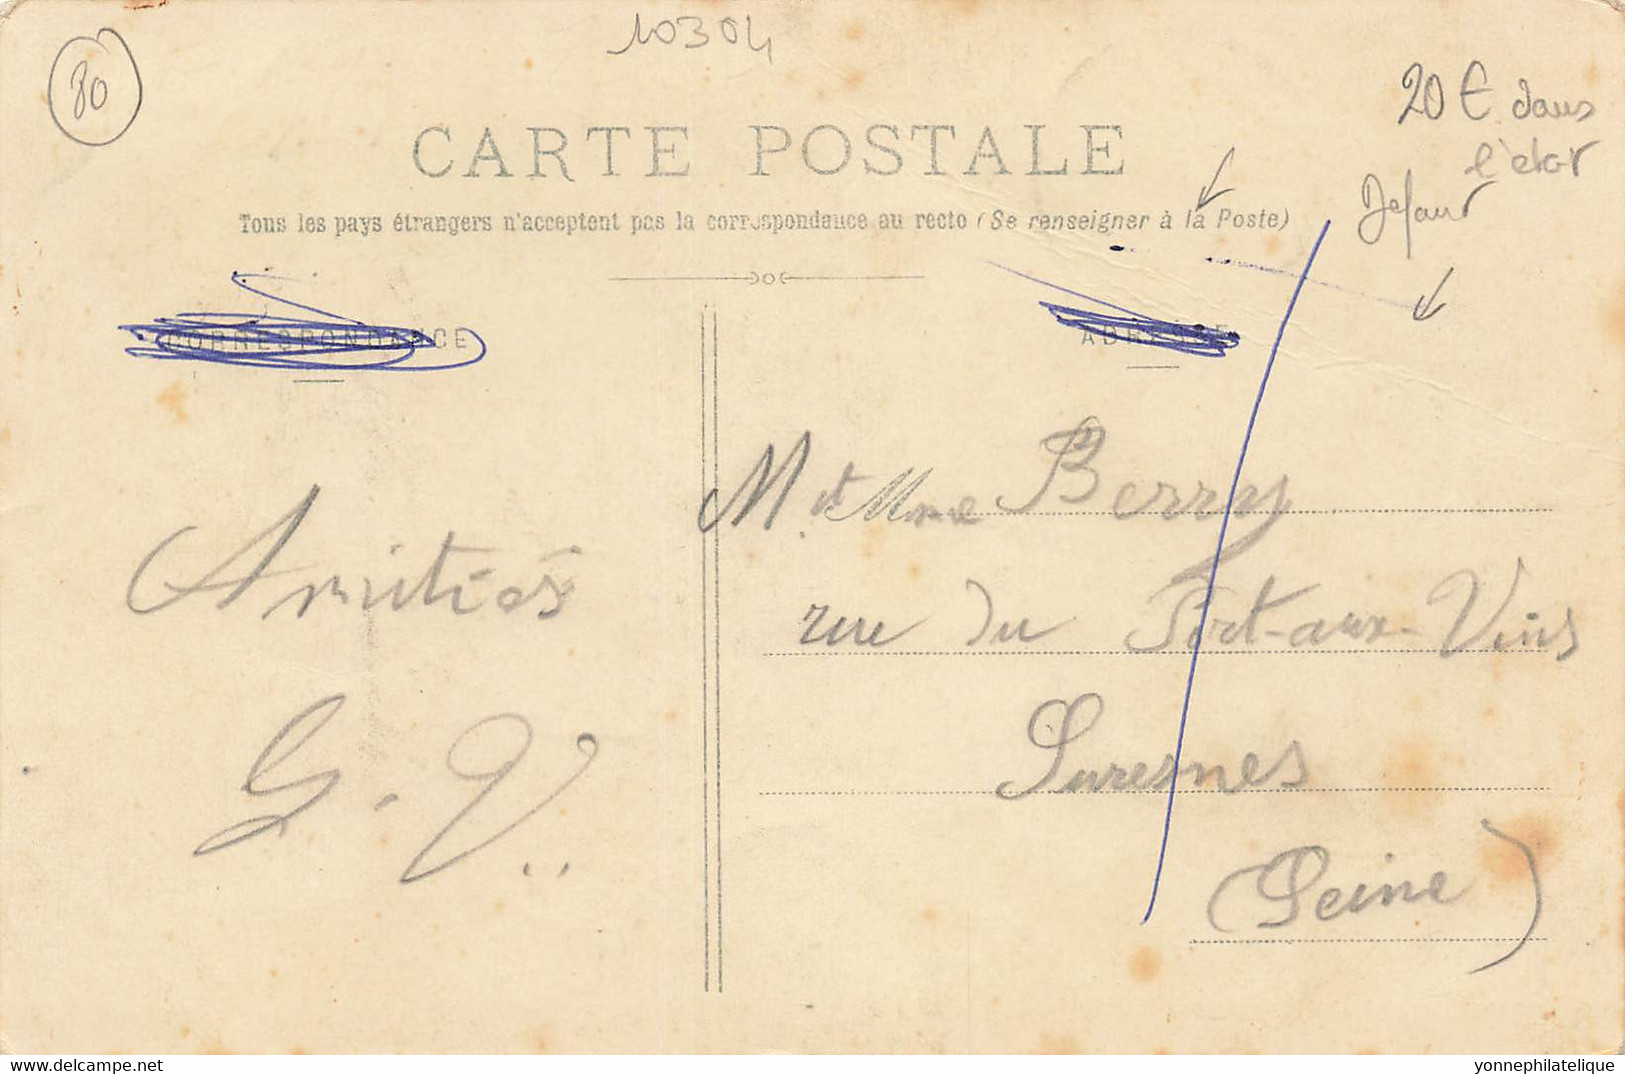 10304
80
20 € dans
l'état
Defaut
CARTE POSTALE
Tous les pays étrangers n'acceptent pas la correspondance au recto (Se renseigner à la Poste)
CORRESPONDANCE
ADRESSE
Amitiés
G. V..
M. et Mme Berry
rue du Port-aux-Vins
Suresnes
(Seine)
delcampe.net
yonnephilatelique